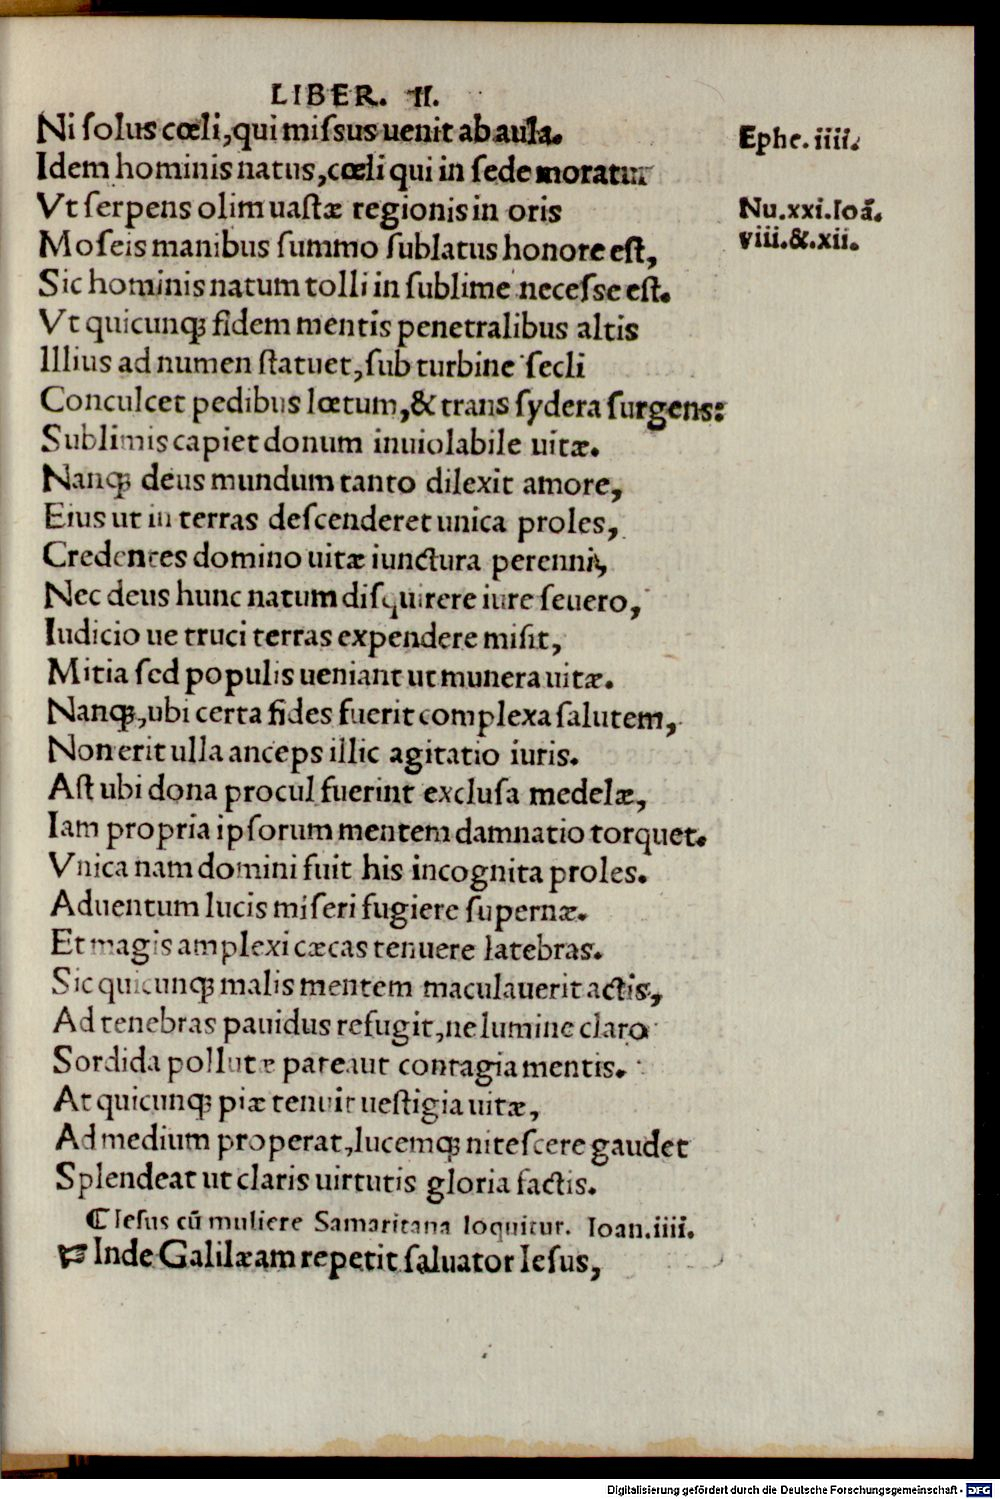 LIBER. II.
Ni ſolus cœli, qui miſsus uenit ab aula.
Ephe. iiii.
Idem hominis natus, cœli qui in ſede moratur
Vt ſerpens olim uaſtæ regionis in oris
Nu.xxi.Ioã.
Moſeis manibus ſummo ſublatus honore eſt,
viii.&.xii.
Sic hominis natum tolli in ſublime neceſse eſt.
Vt quicunqꝫ fidem mentis penetralibus altis
Illius ad numen ſtatuet, ſub turbine ſecli
Conculcet pedibus lœtum, & trans ſydera ſurgens:
Sublimis capiet donum inuiolabile uitæ.
Nanqꝫ deus mundum tanto dilexit amore,
Eius ut in terras deſcenderet unica proles,
Credentes domino uitæ iunctura perenni,
Nec deus hunc natum diſquirere iure ſeuero,
Iudicio ue truci terras expendere miſit,
Mitia ſed populis ueniant ut munera uitæ.
Nanqꝫ, ubi certa fides fuerit complexa ſalutem,
Non erit ulla anceps illic agitatio iuris.
Aſt ubi dona procul fuerint excluſa medelæ,
Iam propria ipſorum mentem damnatio torquet.
Vnica nam domini fuit his incognita proles.
Aduentum lucis miſeri fugiere ſupernæ.
Et magis amplexi cæcas tenuere latebras.
Sic quicunqꝫ malis mentem maculauerit actis,
Ad tenebras pauidus refugit, ne lumine claro
Sordida pollutæ pareaut contagia mentis.
At quicunqꝫ piæ tenuit ueſtigia uitæ,
Ad medium properat, lucemqꝫ niteſcere gaudet
Splendeat ut claris uirtutis gloria factis.
¶ Ieſus cũ muliere Samaritana loquitur. Ioan.iiii.
☞ Inde Galilæam repetit ſaluator Ieſus,
Digitalisierung gefördert durch die Deutsche Forschungsgemeinschaft - DFG